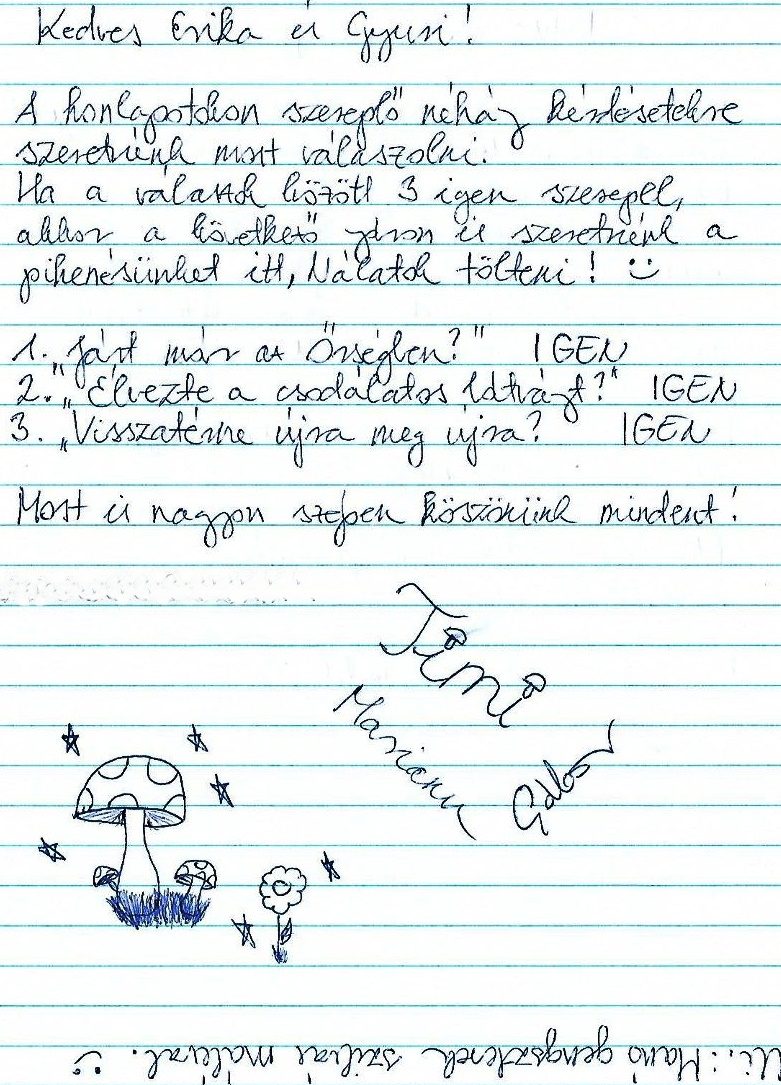 Kedves Erika és Gyuri!
A honlapotokon szereplő néhány kérdésetekre
szeretnénk most válaszolni.
Ha a válaszok között 3 igen szerepel,
akkor a következő nyáron is szeretnénk a
pihenésünket itt, Nálatok tölteni! :)
1. „Járt már az Őrségben?" IGEN
2. „Élvezte a csodálatos látványt?" IGEN
3. „Visszatérne újra meg újra? IGEN
Most is nagyon szépen köszönünk mindent!
Timi
Mariann
Gábor
Ui.: Manó gengszterek szilvás